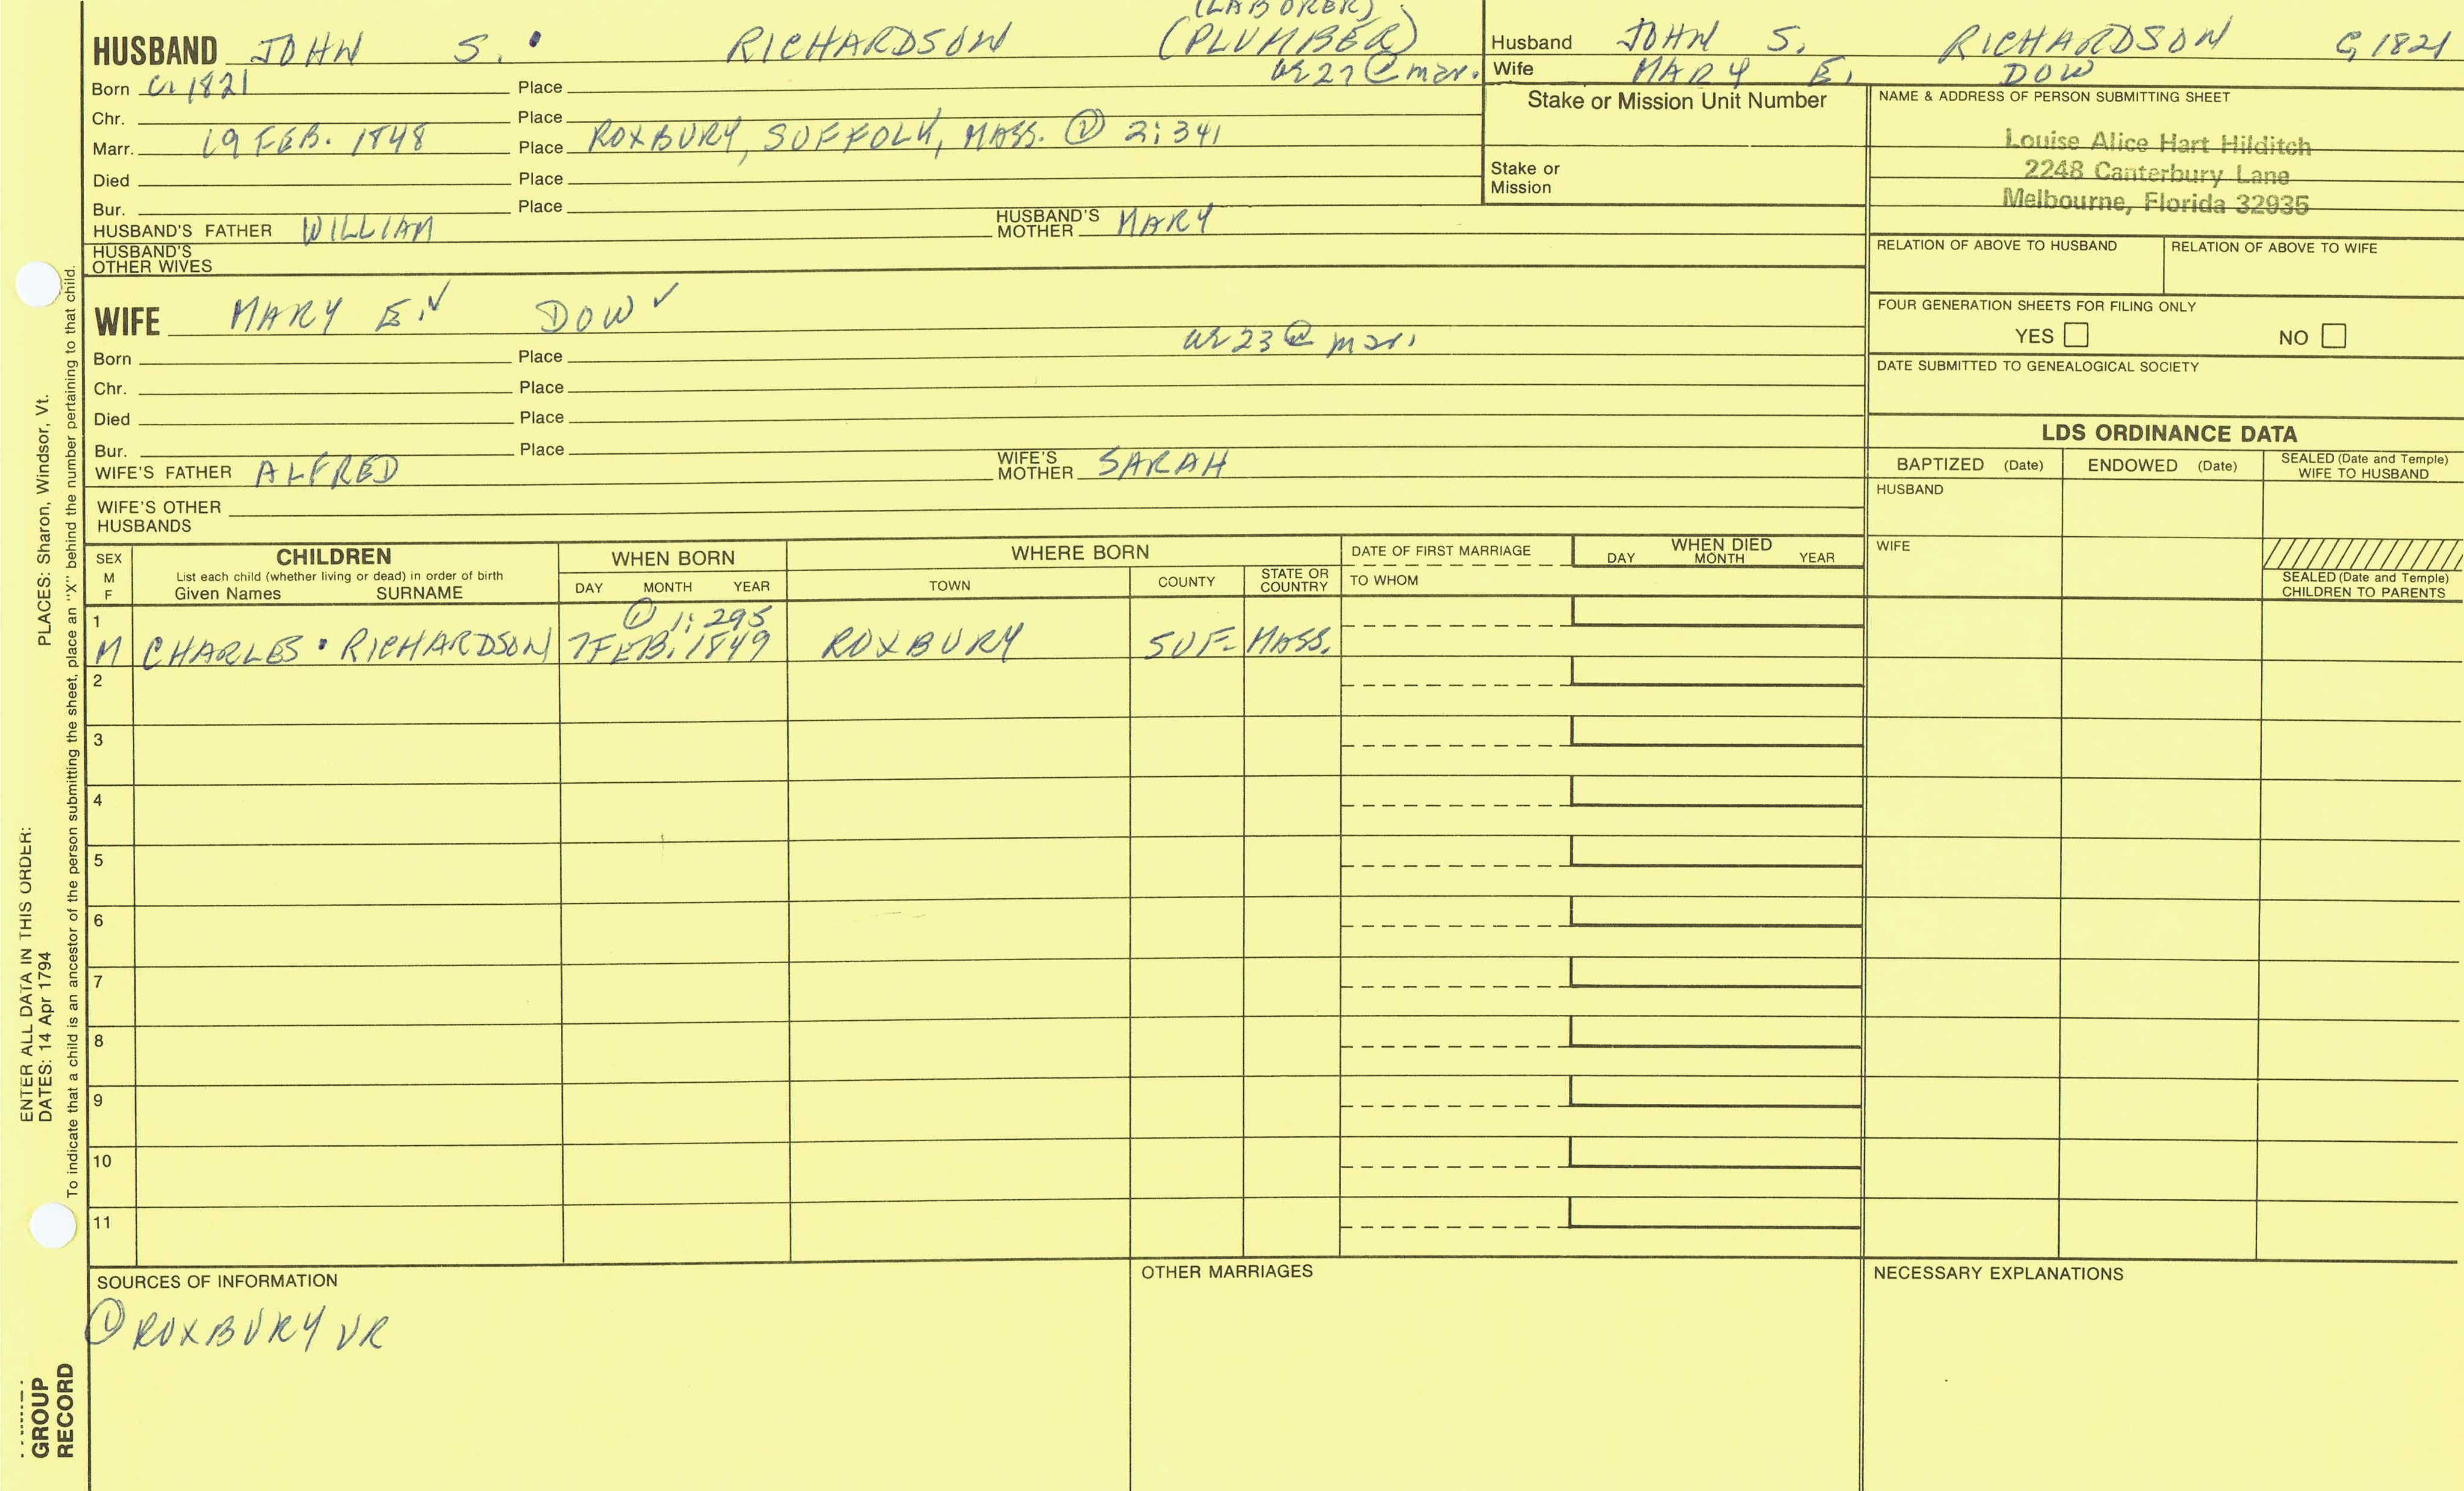 (LABORER)
HUSBAND JOHN S. RICHARDSON (PLUMBER)
Husband JOHN S. RICHARDSON C, 1821
Wife MARY E. DOW
Born C. 1821 Place @ mar.
Chr. Place
Marr. 19 FEB. 1848 Place ROXBURY, SUFFOLK, MASS. ① 2: 341
Died Place
Bur. Place
HUSBAND'S FATHER WILLIAM HUSBAND'S MOTHER MARY
HUSBAND'S OTHER WIVES
Stake or Mission Unit Number
Stake or
Mission
NAME & ADDRESS OF PERSON SUBMITTING SHEET
Louise Alice Hart Hilditch
2248 Canterbury Lane
Melbourne, Florida 32935
RELATION OF ABOVE TO HUSBAND RELATION OF ABOVE TO WIFE
FOUR GENERATION SHEETS FOR FILING ONLY
YES NO
DATE SUBMITTED TO GENEALOGICAL SOCIETY
WIFE MARY E. ✓ DOW ✓
23 @ mar.
Born Place
Chr. Place
Died Place
Bur. Place
WIFE'S FATHER ALFRED WIFE'S MOTHER SARAH
WIFE'S OTHER
HUSBANDS
LDS ORDINANCE DATA
BAPTIZED (Date) ENDOWED (Date) SEALED (Date and Temple) WIFE TO HUSBAND
HUSBAND
WIFE
SEALED (Date and Temple)
CHILDREN TO PARENTS
SEX
M
F
CHILDREN
List each child (whether living or dead) in order of birth
Given Names SURNAME
WHEN BORN
DAY MONTH YEAR
WHERE BORN
TOWN COUNTY STATE OR COUNTRY
DATE OF FIRST MARRIAGE
TO WHOM
WHEN DIED
DAY MONTH YEAR
1 ① 1: 295
M CHARLES • RICHARDSON 7 FEB. 1849 ROXBURY SUF. MASS.
2
3
4
5
6
7
8
9
10
11
SOURCES OF INFORMATION
① ROXBURY VR
OTHER MARRIAGES
NECESSARY EXPLANATIONS
ENTER ALL DATA IN THIS ORDER:
DATES: 14 Apr 1794 PLACES: Sharon, Windsor, Vt.
To indicate that a child is an ancestor of the person submitting the sheet, place an "X" behind the number pertaining to that child.
GROUP
RECORD